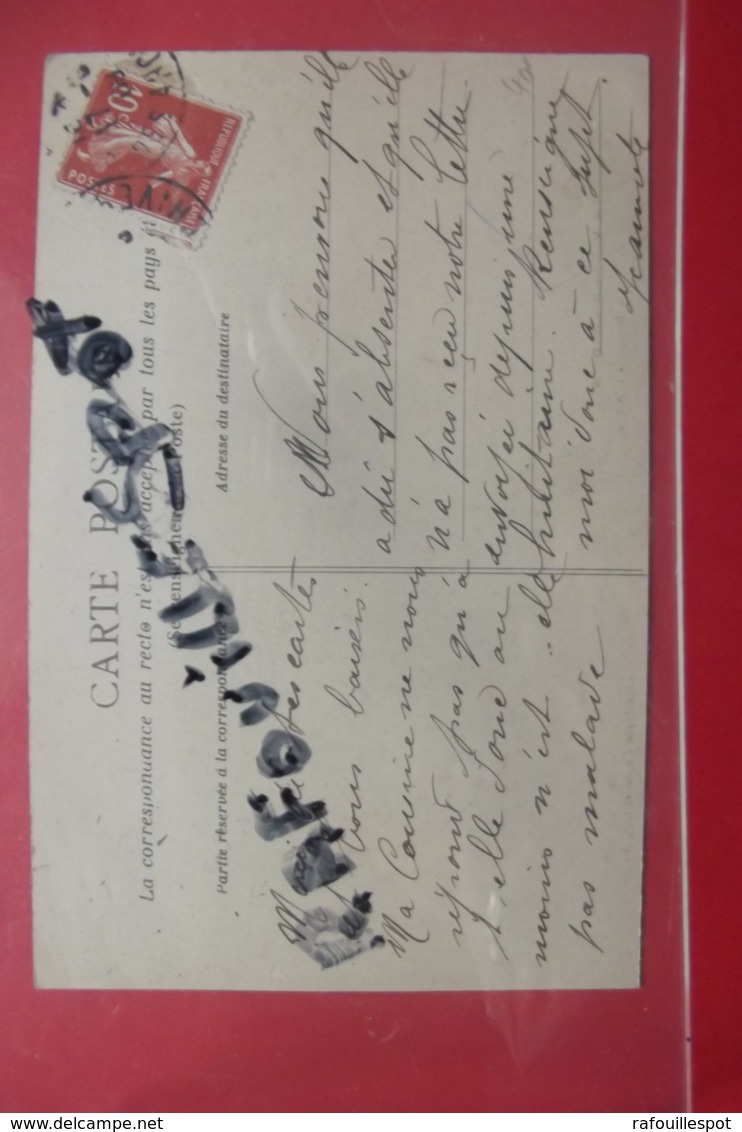 CARTE POSTA
La correspondance au recto n'est pas acceptée par tous les pays é
(Se renseigner à la Poste)
Partie réservée à la correspondance
Adresse du destinataire
RÉPUBLIQUE FRANÇAISE
10c
POSTES
RAFOUILLESPOT
Merci de tes cartes
et bons baisers.
Ma Cousine ne nous
répond pas qu'a
t'elle donc au
moins n'est-elle
pas malade
Nous pensons qu'elle
a du s'absenter et qu'elle
n'a pas reçu notre lettre
envoyée depuis une
huitaine. Renseigne
moi donc à ce sujet.
rafouillespot